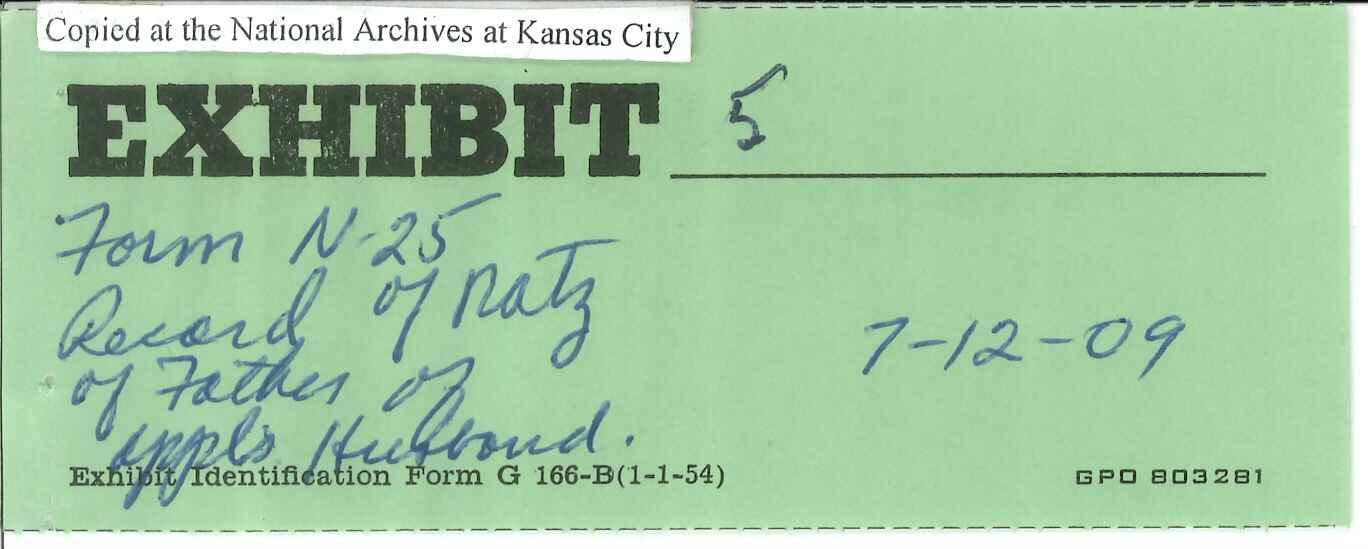 Copied at the National Archives at Kansas City
EXHIBIT 5
Form N-25
Record of Natz
of Father of
appl's Husband.
7-12-09
Exhibit Identification Form G 166-B(1-1-54)
GPO 803281